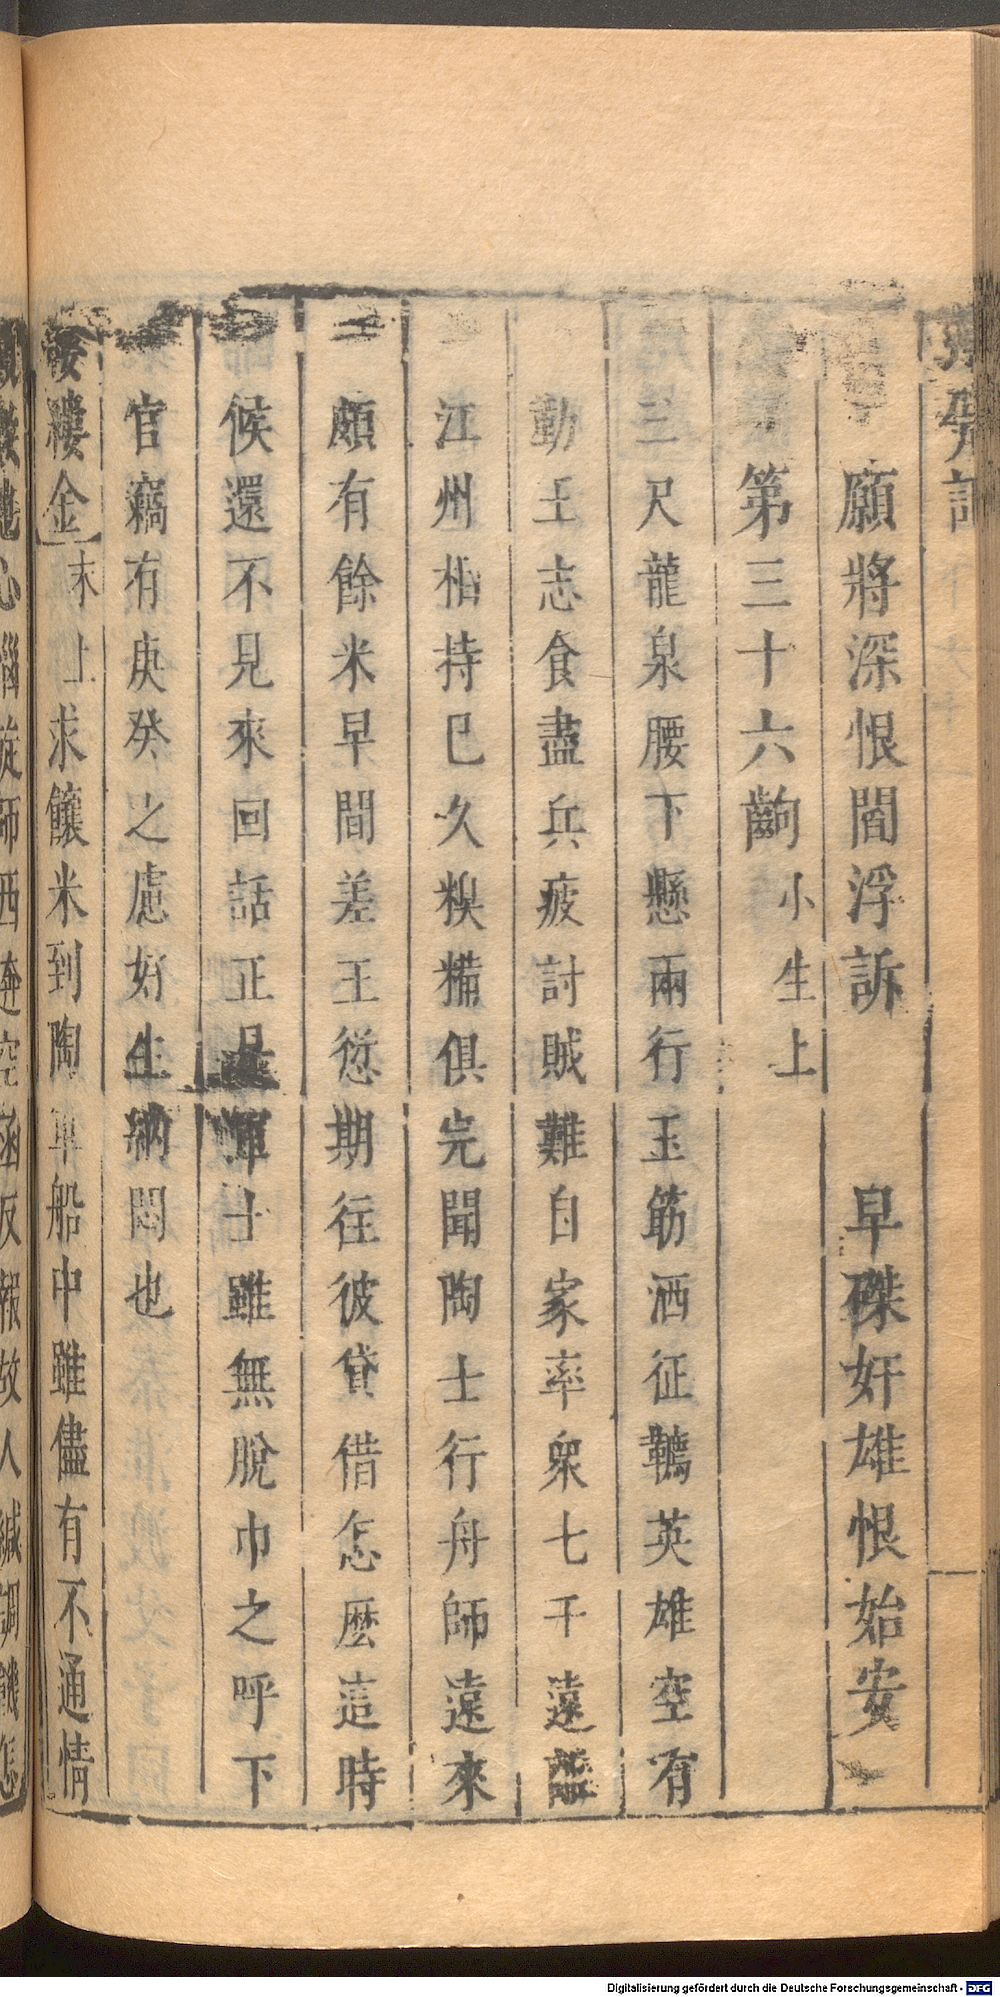 願將深恨閻浮訴　早磔奸雄恨始安
第三十六齣 小生上
三尺龍泉腰下懸兩行玉筯洒征韉英雄空有
勤王志食盡兵疲討賊難自家率衆七千遠
江州相持已久糗糒俱完聞陶士行舟師遠來
頗有餘米早間差王愆期往彼貸借怎麽這時
候還不見來回話正是軍士雖無脫巾之呼下
官竊有庚癸之慮好生納悶也
縷金 末上 求饟米到陶軍船中雖儘有不通情
Digitalisierung gefördert durch die Deutsche Forschungsgemeinschaft - DFG